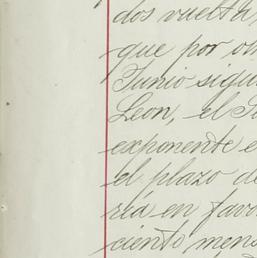 dos vuelta,
que por
Junio
Leon, el
exponente
el plazo de
rea en favor
ciento